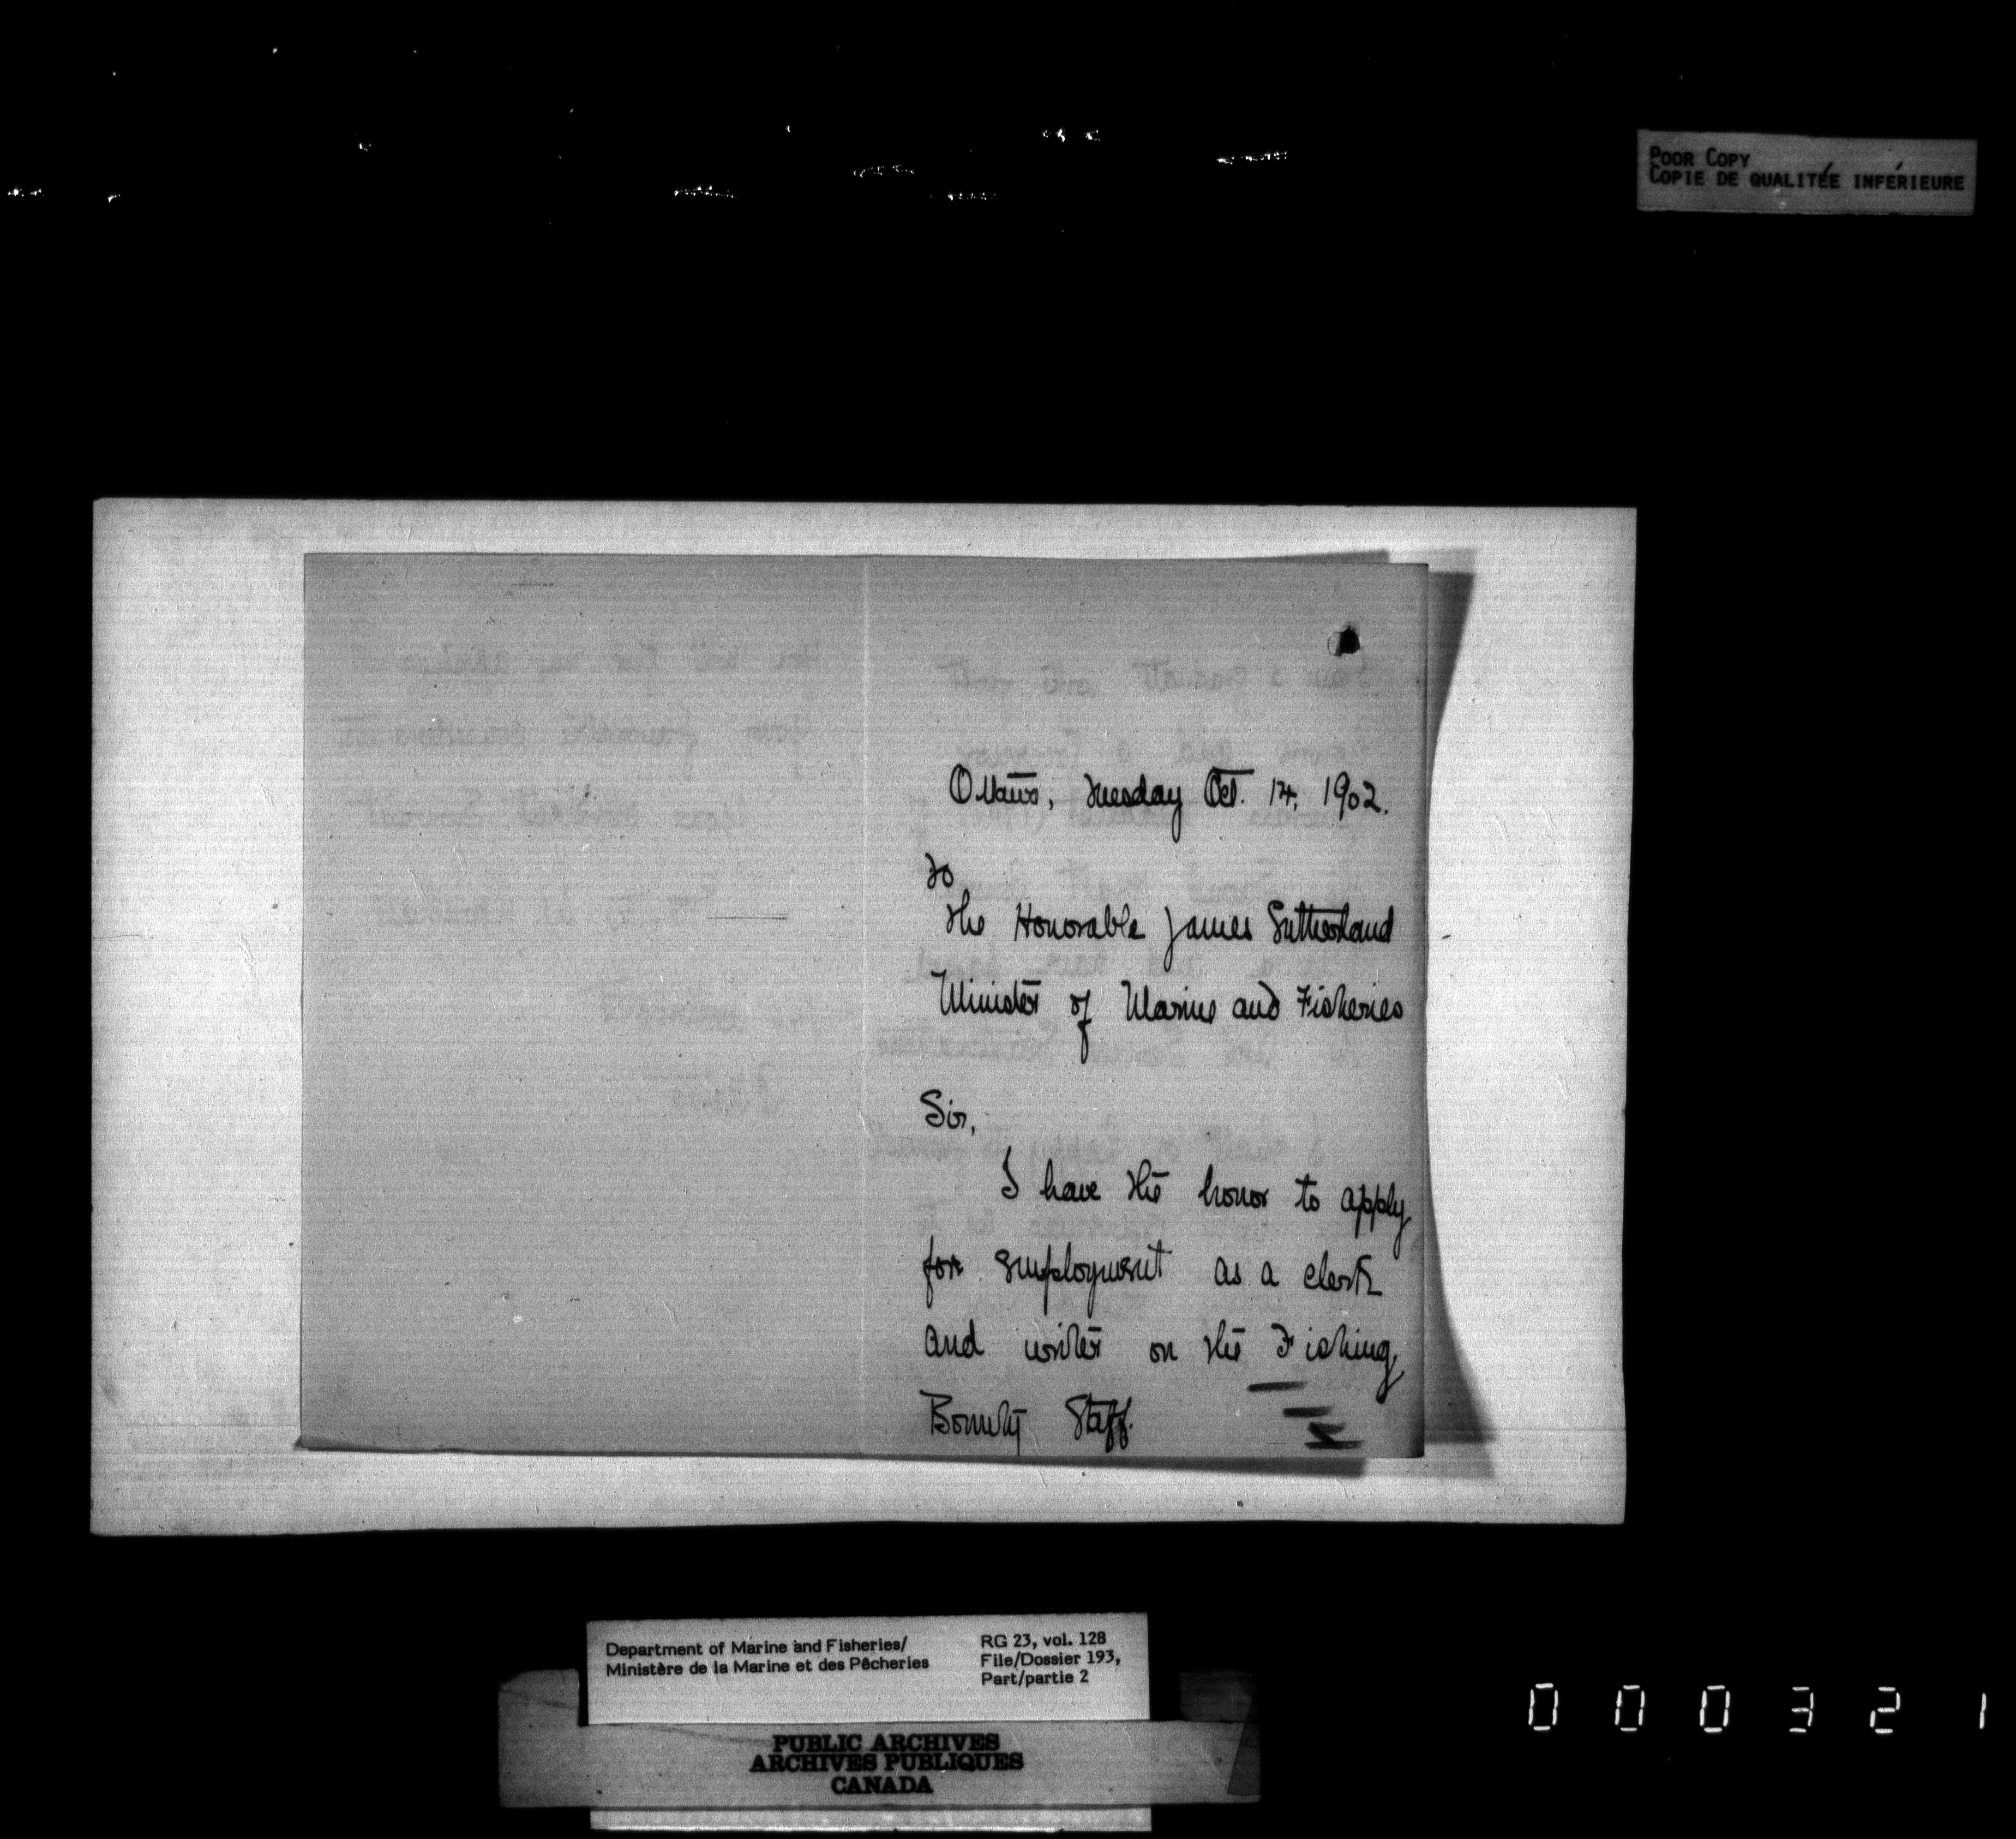 POOR COPY
COPIE DE QUALITÉE INFÉRIEURE
Ottawa, Tuesday Oct. 14, 1902.
To
The Honorable James Sutherland
Minister of Marine and Fisheries
Sir,
I have the honor to apply
for employment as a clerk
and writer on the Fishing
Bounty Staff.
Department of Marine and Fisheries/
Ministère de la Marine et des Pêcheries
RG 23, vol. 128
File/Dossier 193,
Part/partie 2
PUBLIC ARCHIVES
ARCHIVES PUBLIQUES
CANADA
000321